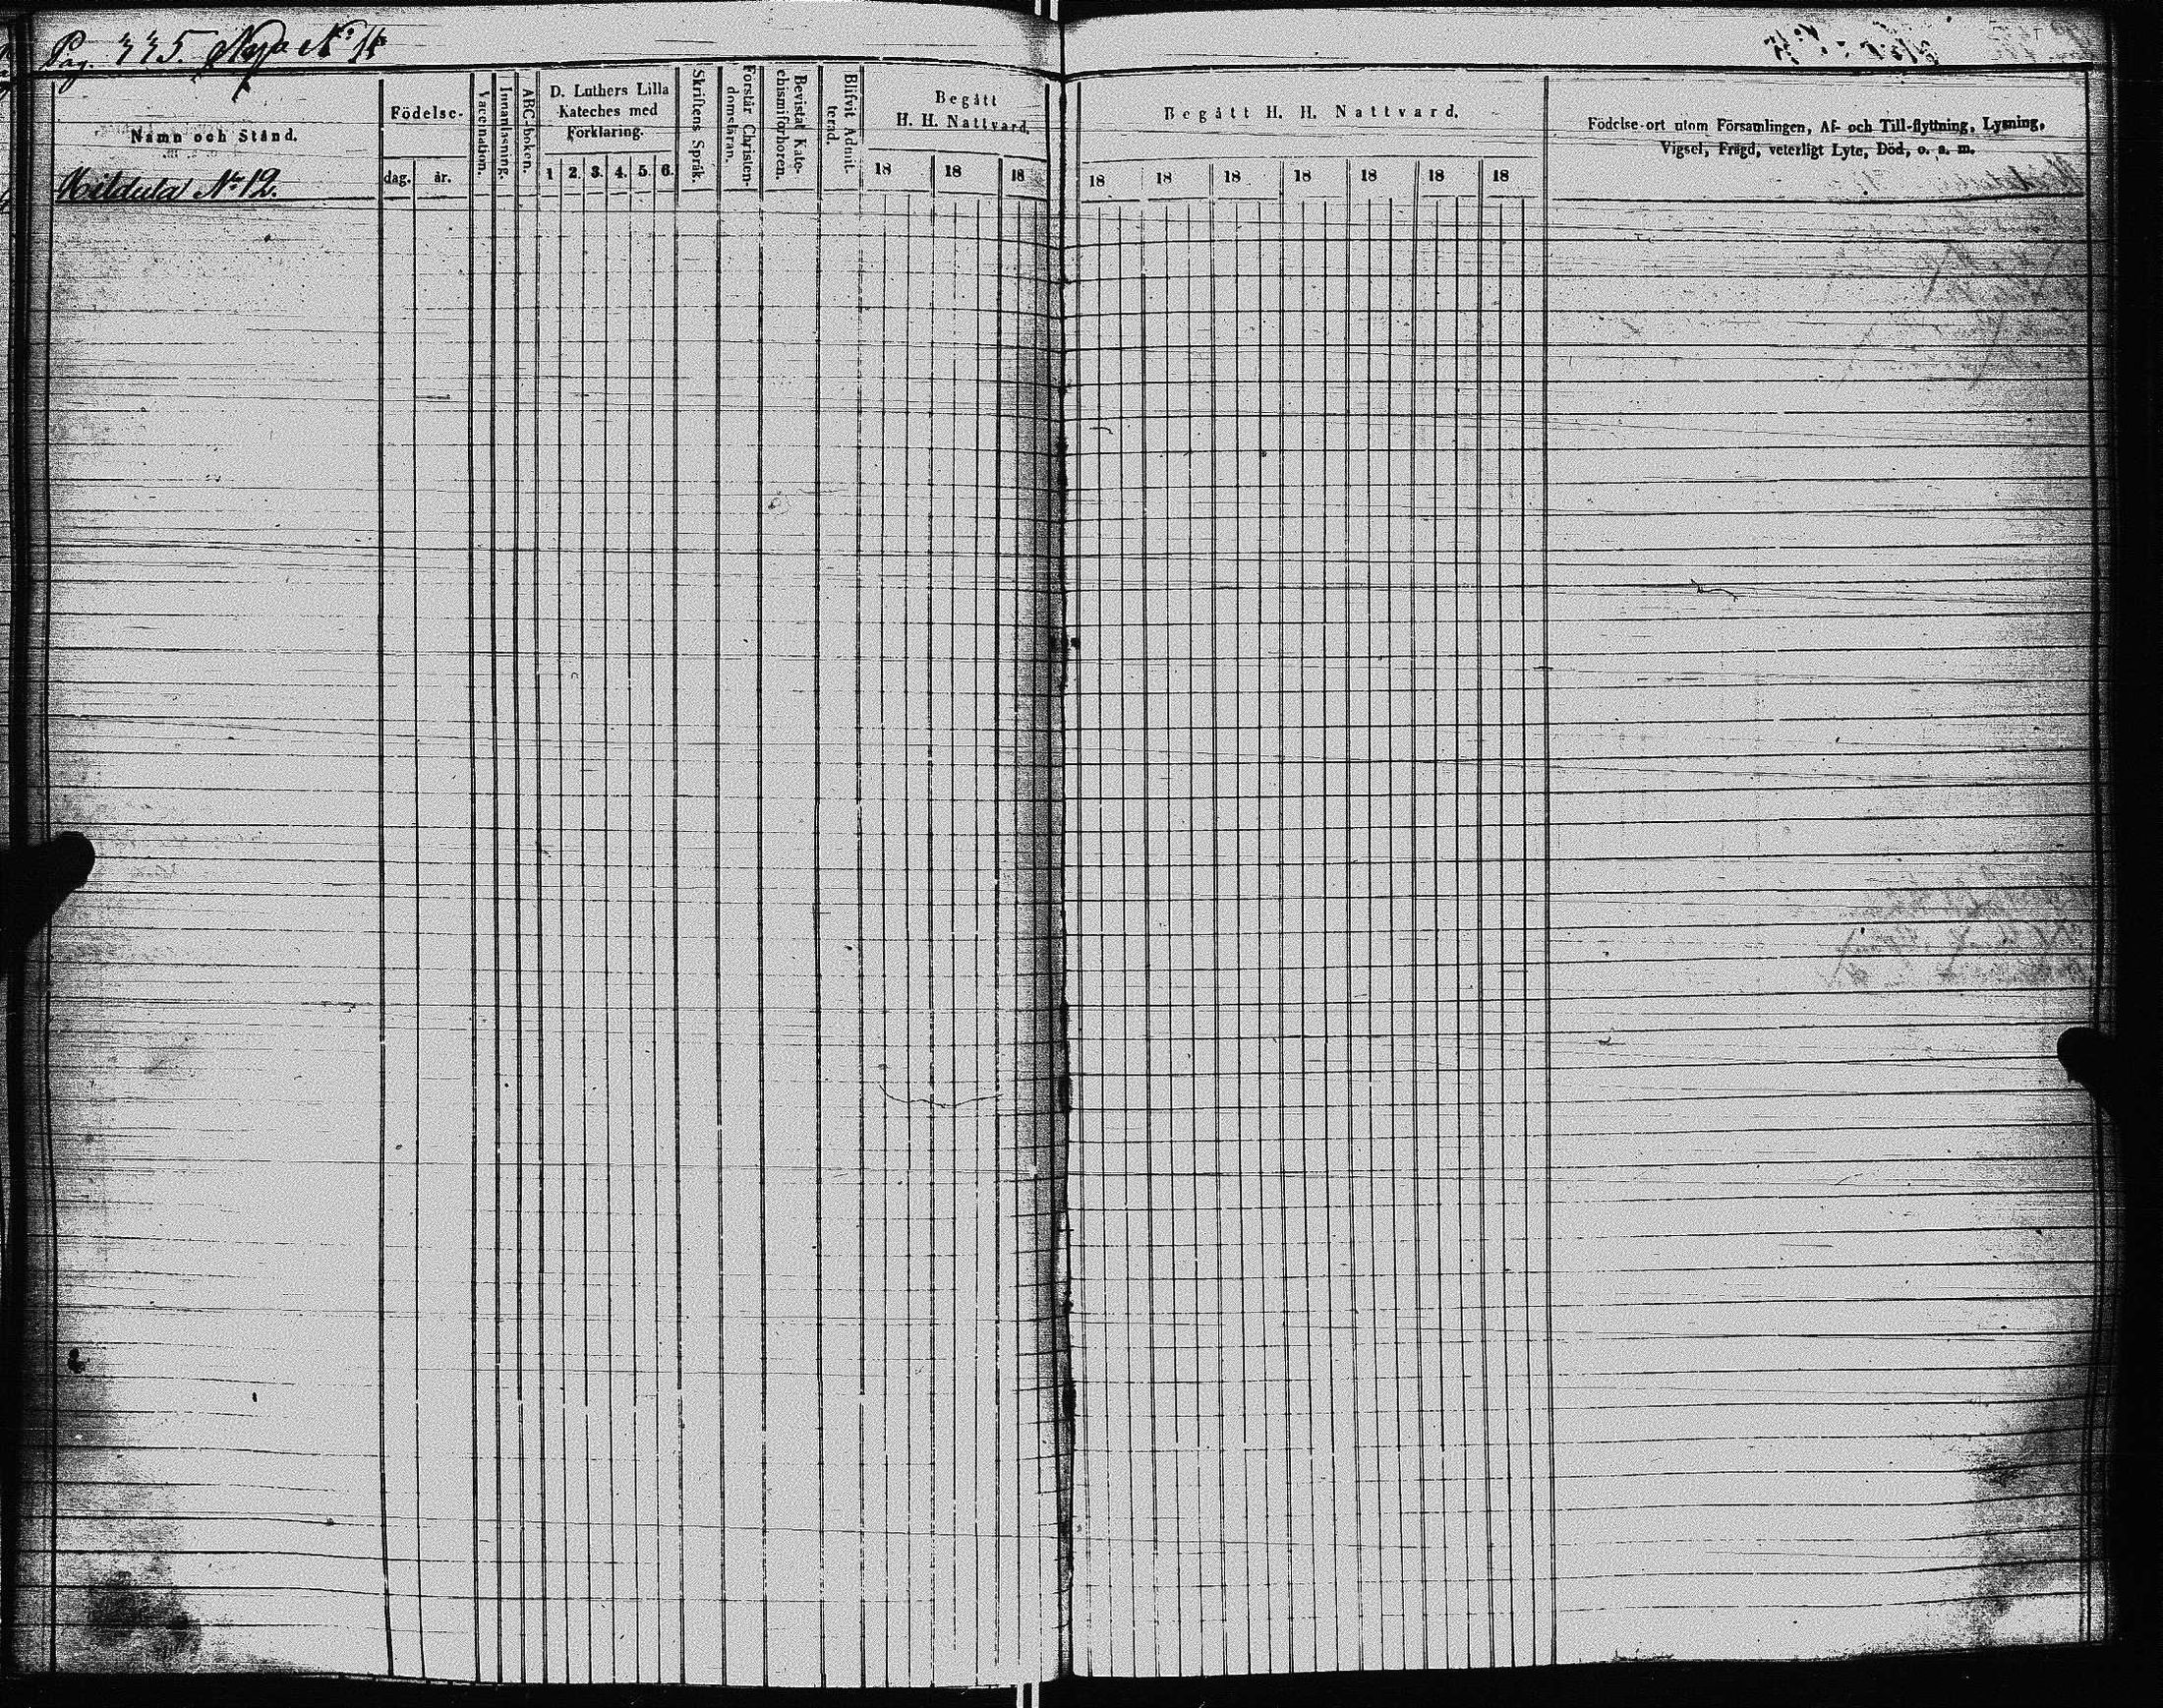 Pag. 335. Nopa No 11
Namn och Stånd.
Hildula No 12.
Födelse-
dag. år.
Vaccination.
Innanläsning.
ABC-boken.
D. Luthers Lilla
Kateches med
Förklaring.
1 2. 3. 4. 5. 6.
Skriftens Språk.
Förstår Christen-
domsläran.
Bevistat Kate-
chismiförhören.
Blifvit Admit-
terad.
Begått
H. H. Nattvard.
18 18 18
Begått H. H. Nattvard.
18 18 18 18 18 18 18
Födelse-ort utom Församlingen, Af- och Till-flyttning, Lysning,
Vigsel, Frägd, veterligt Lyte, Död, o. s. m.